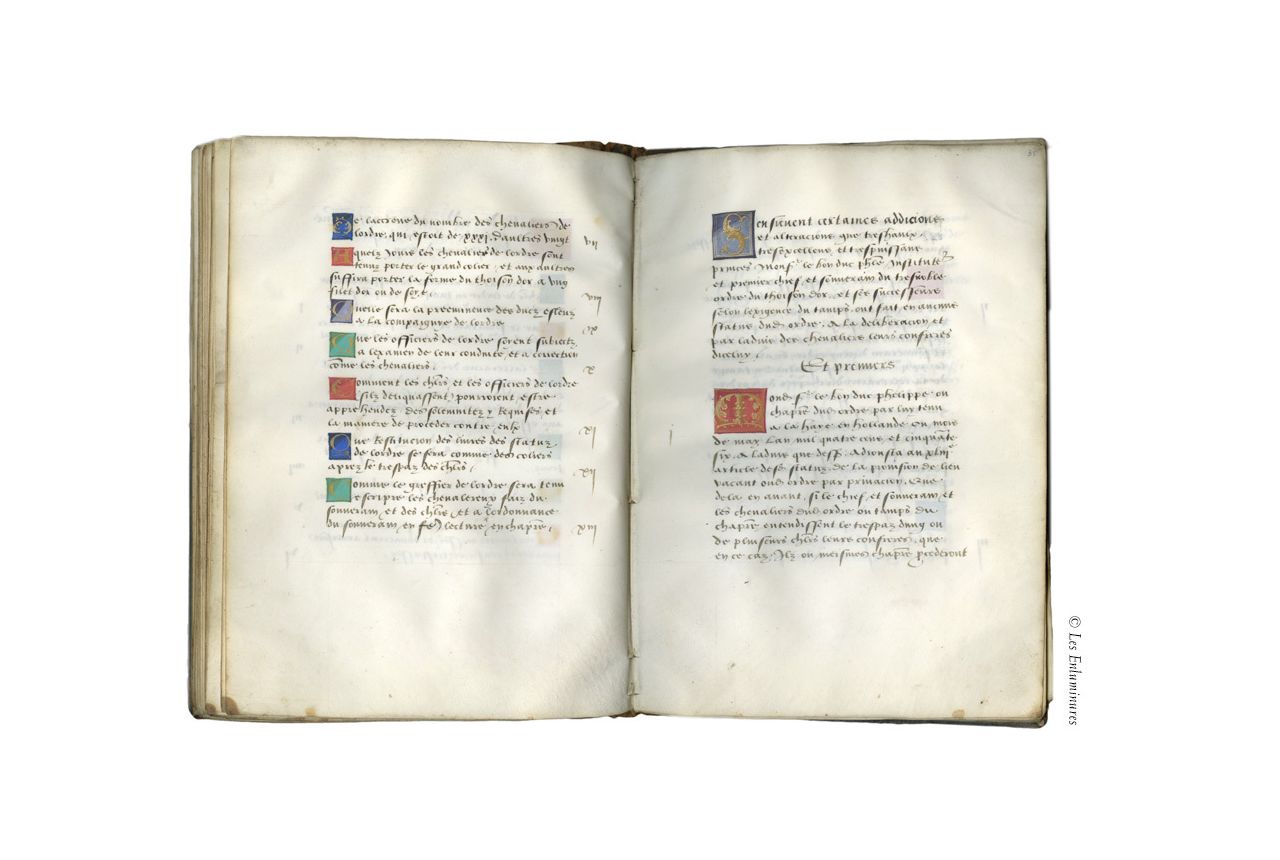 De laccroie du nombre des chevaliers de
lordre, qui estoit de xxxi. daultres vingt
vii
A quelz jours les chevaliers de lordre sont
tenuz porter le grand colier, et aux aultres
suffira porter la forme du thoison dor a ung
filet dor ou de soye.
viii
Quelle sera la preeminence des ducz esleuz
a la compaignie de lordre
ix
Que les officiers de lordre soyent subiectz
a lexamen de leur conduite, et a correction
come les chevaliers.
x
Comment les chlrs et les officiers de lordre
silz deliquassent pourroient estre
apprehendez, des solemnitez y requises, et
la maniere de proceder contre eulx
xi
Que restitucion des livres des statuz
de lordre se fera comme des coliers
aprez le trespaz des chlrs.
xii
Comme le greffier de lordre sera tenu
escripre les chevalereux faiz du
souverain et des chlrs, et a lordonnance
du souverain en fe lecture en chapre.
xiii
35
Sensuivent certaines addicions
et alteracions que treshaulx
tresexcellens, et trespuissans
princes Monsr le bon duc phle, Instituteur
et premier chief, et souverain du tresnoble
ordre du thoison dor, et ses successeurs
selon lexigence du tamps, ont fait, en aucuns
statuz dud ordre, A la deliberacion et
par ladvis des chevaliers leurs confreres
dicelluy.
Et premiers
i
Monsr le bon duc philippe ou
chapre dud ordre par luy tenu
a la haye en hollande ou mois
de may Lan mil quatre cens et cinquante
six. A ladvis que dess, Adiousta au xlii
article desd statuz, de la provision de lieu
vacant oud ordre par privacion, Que
dela en avant, si le chief, et souverain et
les chevaliers dud ordre ou tamps du
chapre entendissent le trespaz dung ou
de pluiseurs chlrs leurs confreres, que
en ce caz, Ilz ou meismes chapre procederont
© Les Enluminures